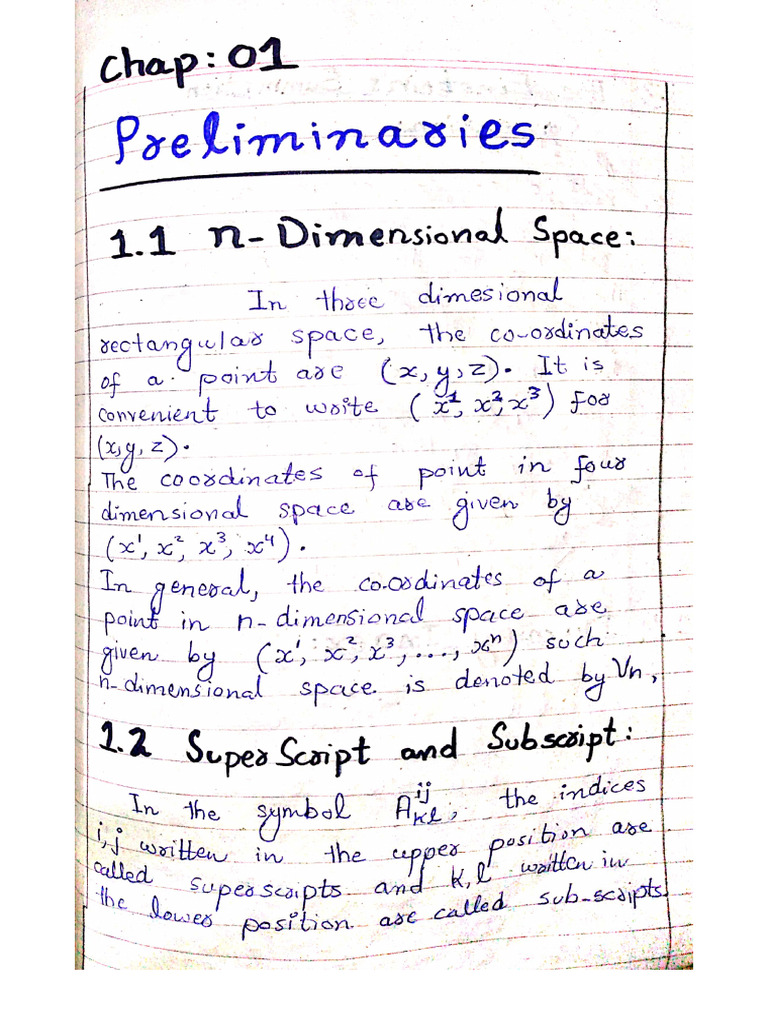 Chap: 01
Preliminaries
1.1 n-Dimensional Space:
In three dimesional
rectangular space, the co-ordinates
of a point are (x, y, z). It is
convenient to write (x¹, x², x³) for
(x, y, z).
The coordinates of point in four
dimensional space are given by
(x¹, x², x³, x⁴).
In general, the co-ordinates of a
point in n-dimensional space are
given by (x¹, x², x³, ..., xⁿ) such
n-dimensional space is denoted by Vn,
1.2 SuperScript and Subscript:
In the symbol A^{ij}_{kl}, the indices
i, j written in the upper position are
called superscripts and k, l written in
the lower position are called sub-scripts.